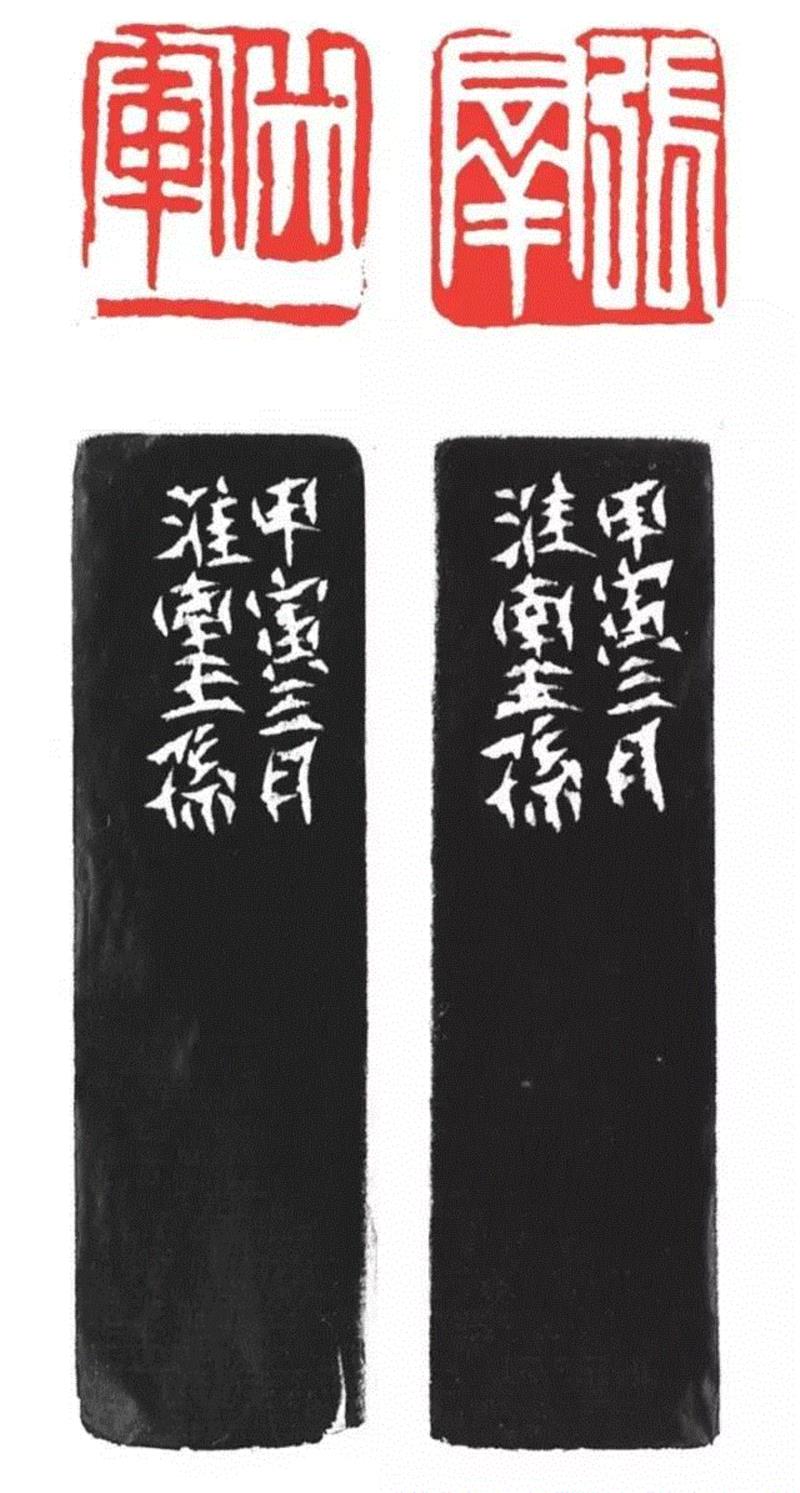 張
軍
甲寅三月
淮南王孫
甲寅三月
淮南王孫